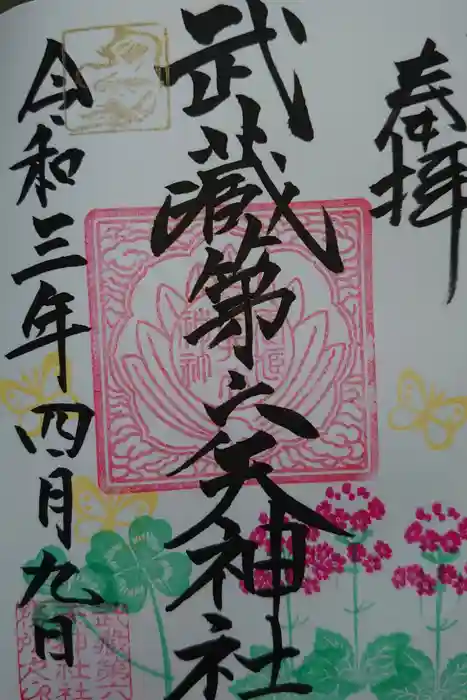 奉拝
武蔵第六天神社
令和三年四月九日